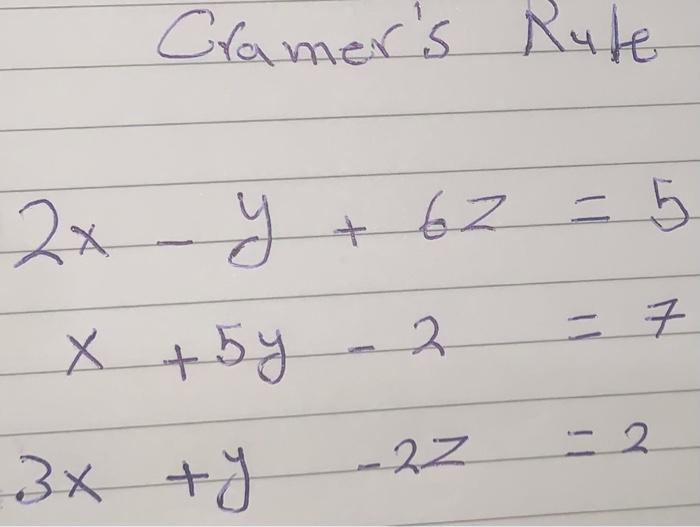 Cramer's Rule
2x - y + 6z = 5
x + 5y - 2 = 7
3x + y - 2z = 2